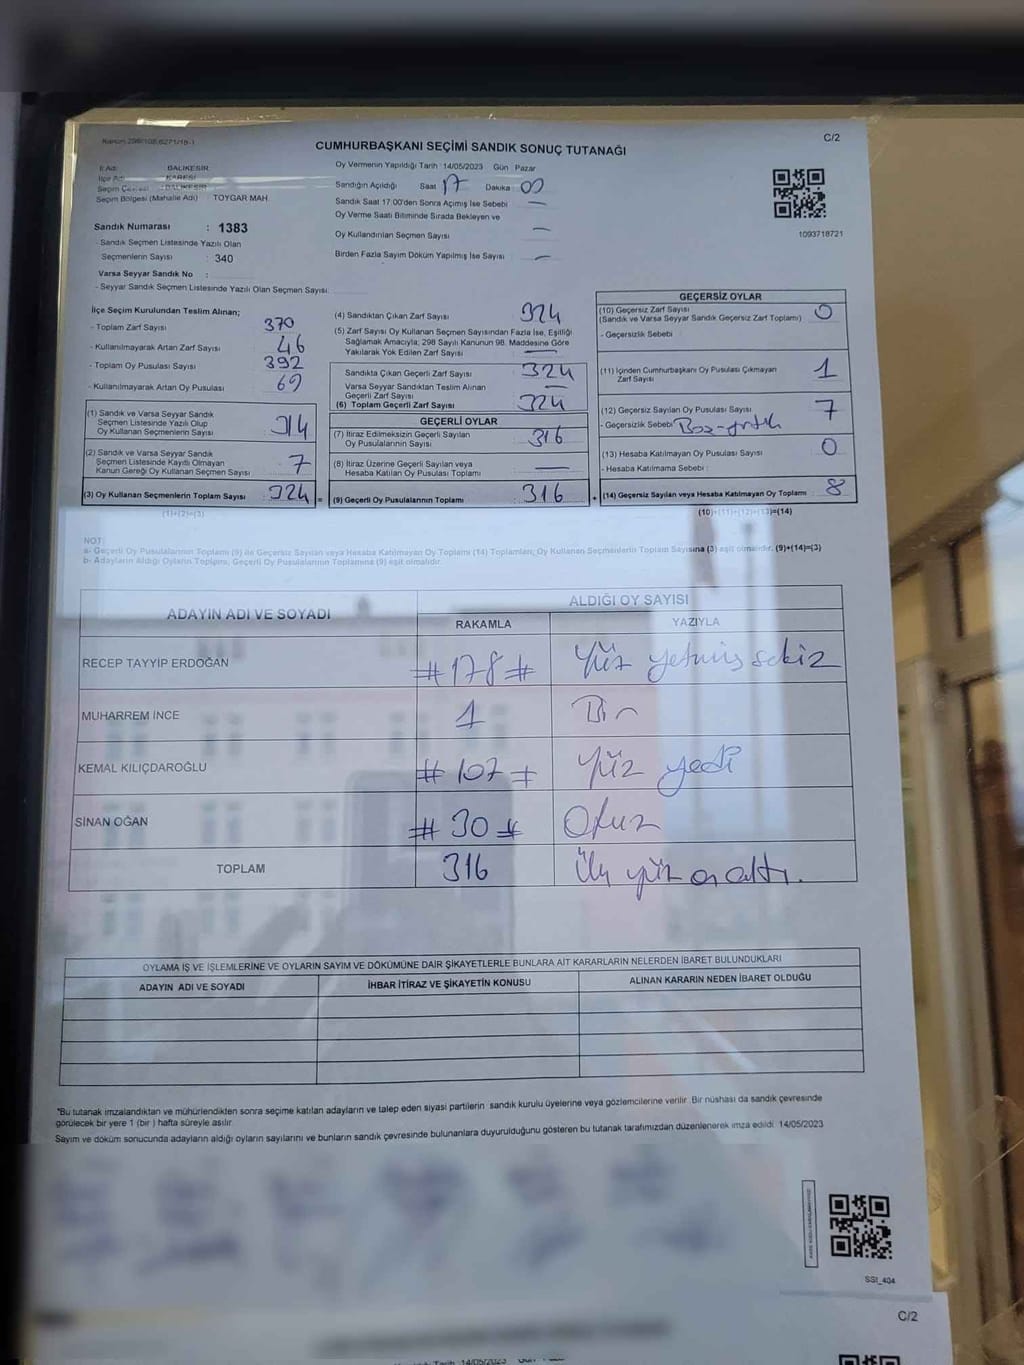 CUMHURBAŞKANI SEÇİMİ SANDIK SONUÇ TUTANAĞI
C/2
İl Adı : BALIKESİR
İlçe Adı : KARESİ
Seçim Çevresi : BALIKESİR
Seçim Bölgesi (Mahalle Adı) TOYGAR MAH.
Oy Vermenin Yapıldığı Tarih : 14/05/2023 Gün : Pazar
Sandığın Açıldığı Saat 17 Dakika 00
Sandık Saat 17.00'den Sonra Açımış İse Sebebi —
Oy Verme Saati Bitiminde Sırada Bekleyen ve
Oy Kullandırılan Seçmen Sayısı —
Birden Fazla Sayım Döküm Yapılmış İse Sayısı —
1093718721
Sandık Numarası : 1383
- Sandık Seçmen Listesinde Yazılı Olan
Seçmenlerin Sayısı : 340
Varsa Seyyar Sandık No :
- Seyyar Sandık Seçmen Listesinde Yazılı Olan Seçmen Sayısı:
İlçe Seçim Kurulundan Teslim Alınan;
- Toplam Zarf Sayısı 370
- Kullanılmayarak Artan Zarf Sayısı 46
- Toplam Oy Pusulası Sayısı 392
- Kullanılmayarak Artan Oy Pusulası 69
(1) Sandık ve Varsa Seyyar Sandık
Seçmen Listesinde Yazılı Olup
Oy Kullanan Seçmenlerin Sayısı 314
(2) Sandık ve Varsa Seyyar Sandık
Seçmen Listesinde Kayıtlı Olmayan
Kanun Gereği Oy Kullanan Seçmen Sayısı 7
(3) Oy Kullanan Seçmenlerin Toplam Sayısı 324 =
(1)+(2)=(3)
(4) Sandıktan Çıkan Zarf Sayısı 324
(5) Zarf Sayısı Oy Kullanan Seçmen Sayısından Fazla İse, Eşitliği
Sağlamak Amacıyla; 298 Sayılı Kanunun 98. Maddesine Göre
Yakılarak Yok Edilen Zarf Sayısı —
Sandıkta Çıkan Geçerli Zarf Sayısı 324
Varsa Seyyar Sandıktan Teslim Alınan
Geçerli Zarf Sayısı —
(6) Toplam Geçerli Zarf Sayısı 324
GEÇERLİ OYLAR
(7) İtiraz Edilmeksizin Geçerli Sayılan
Oy Pusulasının Sayısı 316
(8) İtiraz Üzerine Geçerli Sayılan veya
Hesaba Katılan Oy Pusulası Toplamı —
(9) Geçerli Oy Pusulalarının Toplamı 316 +
GEÇERSİZ OYLAR
(10) Geçersiz Zarf Sayısı
(Sandık ve Varsa Seyyar Sandık Geçersiz Zarf Toplamı) 0
- Geçersizlik Sebebi :
(11) İçinden Cumhurbaşkanı Oy Pusulası Çıkmayan
Zarf Sayısı 1
(12) Geçersiz Sayılan Oy Pusulası Sayısı 7
- Geçersizlik Sebebi
(13) Hesaba Katılmayan Oy Pusulası Sayısı 0
- Hesaba Katılmama Sebebi :
(14) Geçersiz Sayılan veya Hesaba Katılmayan Oy Toplamı 8
(10)+(11)+(12)+(13)=(14)
NOT:
a- Geçerli Oy Pusulalarının Toplamı (9) ile Geçersiz Sayılan veya Hesaba Katılmayan Oy Toplamı (14) Toplamları, Oy Kullanan Seçmenlerin Toplam Sayısına (3) eşit olmalıdır. (9)+(14)=(3)
b- Adayların Aldığı Oyların Toplamı, Geçerli Oy Pusulalarının Toplamına (9) eşit olmalıdır.
ADAYIN ADI VE SOYADI
ALDIĞI OY SAYISI
RAKAMLA YAZIYLA
RECEP TAYYİP ERDOĞAN #178# Yüz yetmiş sekiz
MUHARREM İNCE 1 Bir
KEMAL KILIÇDAROĞLU #107# Yüz yedi
SİNAN OĞAN #30# Otuz
TOPLAM 316 Üç yüz on altı.
OYLAMA İŞ VE İŞLEMLERİNE VE OYLARIN SAYIM VE DÖKÜMÜNE DAİR ŞİKAYETLERLE BUNLARA AİT KARARLARIN NELERDEN İBARET BULUNDUKLARI
ADAYIN ADI VE SOYADI İHBAR İTİRAZ VE ŞİKAYETİN KONUSU ALINAN KARARIN NEDEN İBARET OLDUĞU
*Bu tutanak imzalandıktan ve mühürlendikten sonra seçime katılan adayların ve talep eden siyasi partilerin sandık kurulu üyelerine veya gözlemcilerine verilir. Bir nüshası da sandık çevresinde
görülecek bir yere 1 (bir ) hafta süreyle asılır.
Sayım ve döküm sonucunda adayların aldığı oyların sayılarını ve bunların sandık çevresinde bulunanlara duyurulduğunu gösteren bu tutanak tarafımızdan düzenlenerek imza edildi. 14/05/2023
SSI_404
C/2
Tarih 14/05/2023 Gün